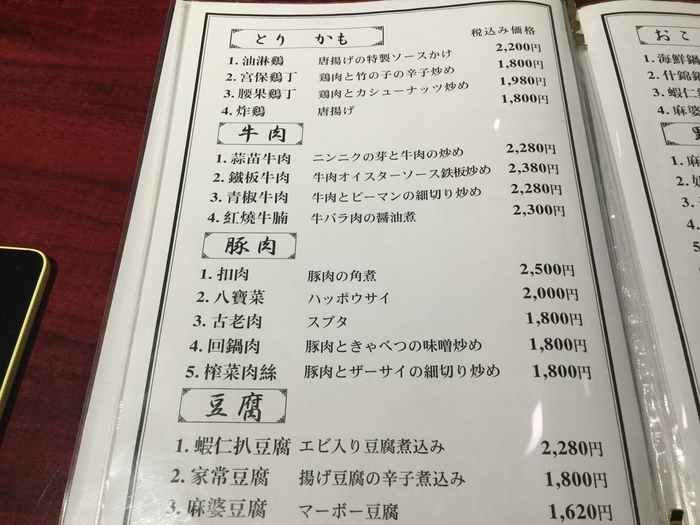 とり かも
税込み価格
1. 油淋鶏 唐揚げの特製ソースかけ 2,200円
2. 宮保鶏丁 鶏肉と竹の子の辛子炒め 1,800円
3. 腰果鶏丁 鶏肉とカシューナッツ炒め 1,980円
4. 炸鶏 唐揚げ 1,800円
牛肉
1. 蒜苗牛肉 ニンニクの芽と牛肉の炒め 2,280円
2. 鐵板牛肉 牛肉オイスターソース鉄板炒め 2,380円
3. 青椒牛肉 牛肉とピーマンの細切り炒め 2,280円
4. 紅燒牛腩 牛バラ肉の醤油煮 2,300円
豚肉
1. 扣肉 豚肉の角煮 2,500円
2. 八寶菜 ハッポウサイ 2,000円
3. 古老肉 スブタ 1,800円
4. 回鍋肉 豚肉ときゃべつの味噌炒め 1,800円
5. 榨菜肉絲 豚肉とザーサイの細切り炒め 1,800円
豆腐
1. 蝦仁扒豆腐 エビ入り豆腐煮込み 2,280円
2. 家常豆腐 揚げ豆腐の辛子煮込み 1,800円
3. 麻婆豆腐 マーボー豆腐 1,620円
おこ
1. 海鮮鍋
2. 什錦鍋
3. 蝦仁
4. 麻婆
1. 麻
2.
3.
4.
5.